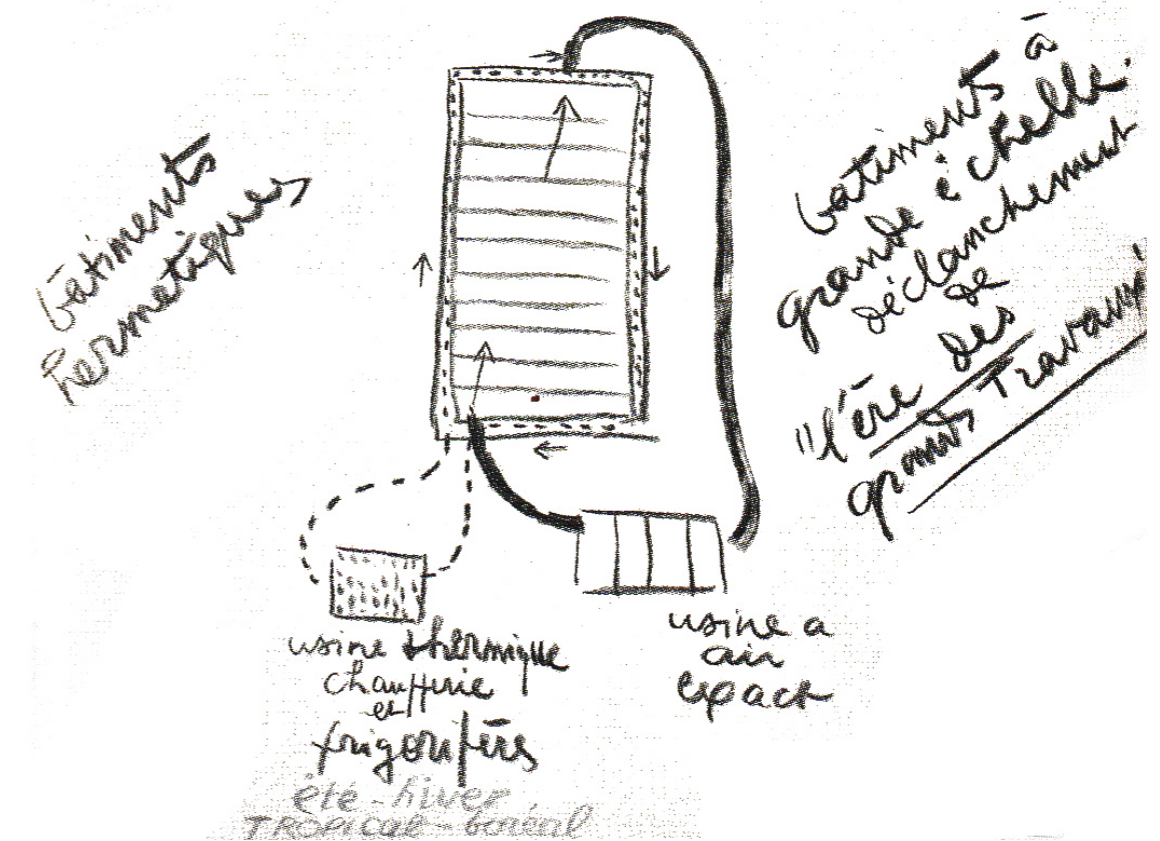 bâtiments
hermétiques
bâtiments à
grande échelle.
déclanchement
de
"l'ère des
grands travaux"
usine thermique
chaufferie
et
frigorifères
été - hiver
TROPICAL - boréal
usine a
air
exact